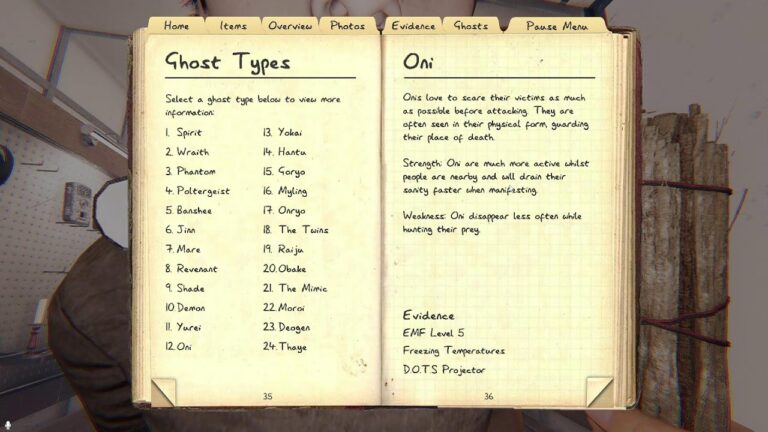 Home Items Overview Photos Evidence Ghosts Pause Menu
Ghost Types
Select a ghost type below to view more
information:
1. Spirit
2. Wraith
3. Phantom
4. Poltergeist
5. Banshee
6. Jinn
7. Mare
8. Revenant
9. Shade
10. Demon
11. Yurei
12. Oni
13. Yokai
14. Hantu
15. Goryo
16. Myling
17. Onryo
18. The Twins
19. Raiju
20. Obake
21. The Mimic
22. Moroi
23. Deogen
24. Thaye
35
Oni
Onis love to scare their victims as much
as possible before attacking. They are
often seen in their physical form, guarding
their place of death.
Strength: Oni are much more active whilst
people are nearby and will drain their
sanity faster when manifesting.
Weakness: Oni disappear less often while
hunting their prey.
Evidence
EMF Level 5
Freezing Temperatures
D.O.T.S Projector
36